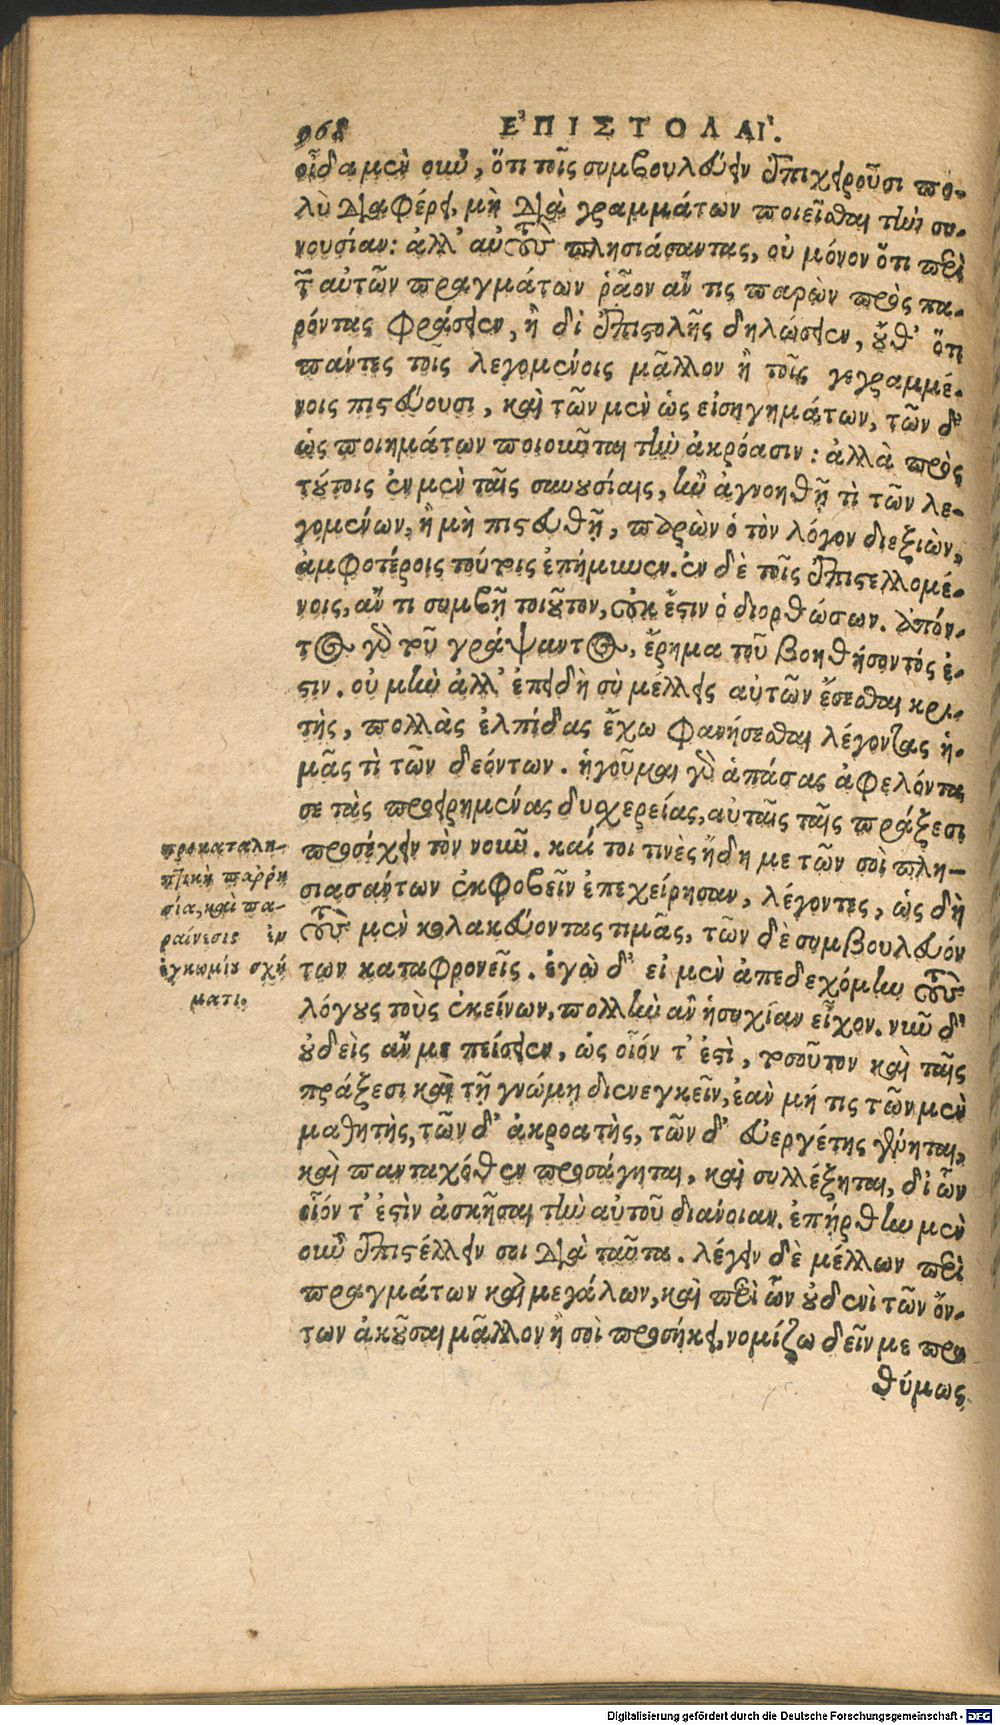 968 ἘΠΙΣΤΟΛΑΙ.
οἶδα μὲν οὖν, ὅτι τοῖς συμβουλεύειν ἐπιχειροῦσι πο-
λὺ διαφέρει, μὴ διὰ γραμμάτων ποιεῖσθαι τὴν συ-
νουσίαν: ἀλλ' αὐτοὺς πλησιάσαντας, οὐ μόνον ὅτι περὶ
τῶν αὐτῶν πραγμάτων ῥᾷον ἄν τις παρὼν πρὸς πα-
ρόντας φράσειεν, ἢ δι' ἐπιστολῆς δηλώσειεν, οὐθ' ὅτι
πάντες τοῖς λεγομένοις μᾶλλον ἢ τοῖς γεγραμμέ-
νοις πιστεύουσι, καὶ τῶν μὲν ὡς εἰσηγημάτων, τῶν δ'
ὡς ποιημάτων ποιοῦνται τὴν ἀκρόασιν: ἀλλὰ πρὸς
τούτοις ἐν μὲν ταῖς συνουσίαις, ἢν ἀγνοηθῇ τὶ τῶν λε-
γομένων, ἢ μὴ πιστευθῇ, παρὼν ὁ τὸν λόγον διεξιὼν,
ἀμφοτέροις τούτοις ἐπήμυνεν. ἐν δὲ τοῖς ἐπιστελλομέ-
νοις, ἄν τι συμβῇ τοιοῦτον, οὐκ ἔστιν ὁ διορθώσων. ἀπόν-
τος γὰρ τοῦ γράψαντος, ἔρημα τοῦ βοηθήσοντός ἐ-
στιν. οὐ μὴν ἀλλ' ἐπειδὴ σὺ μέλλεις αὐτῶν ἔσεσθαι κρι-
τὴς, πολλὰς ἐλπίδας ἔχω φανήσεσθαι λέγοντας ἡ-
μᾶς τὶ τῶν δεόντων. ἡγοῦμαι γὰρ ἁπάσας ἀφελόντα
σε τὰς προειρημένας δυσχερείας, αὐταῖς ταῖς πράξεσι
προσέχειν τὸν νοῦν. καί τοι τινὲς ἤδη με τῶν σοὶ πλη-
σιασάντων ἐκφοβεῖν ἐπεχείρησαν, λέγοντες, ὡς δὴ
τοὺς μὲν κολακεύοντας τιμᾷς, τῶν δὲ συμβουλευόν
των καταφρονεῖς. ἐγὼ δ' εἰ μὲν ἀπεδεχόμην τοὺς
λόγους τοὺς ἐκείνων, πολλὴν ἂν ἡσυχίαν εἶχον. νῦν δ'
οὐδεὶς ἄν με πείσειεν, ὡς οἷόν τ' ἐστὶ, τοσοῦτον καὶ ταῖς
πράξεσι καὶ τῇ γνώμῃ διενεγκεῖν, ἐὰν μή τις τῶν μὲν
μαθητὴς, τῶν δ' ἀκροατὴς, τῶν δ' εὐεργέτης γένηται,
καὶ πανταχόθεν προσάγηται, καὶ συλλέξηται, δι' ὧν
οἷόν τ' ἐστὶν ἀσκῆσαι τὴν αὐτοῦ διάνοιαν. ἐπήρθην μὲν
οὖν ἐπιστέλλειν σοι διὰ ταῦτα. λέγειν δὲ μέλλων περὶ
πραγμάτων καὶ μεγάλων, καὶ περὶ ὧν οὐδενὶ τῶν ὄν-
των ἀκοῦσαι μᾶλλον ἢ σοὶ προσήκει, νομίζω δεῖν με προ
θύμως
προκαταλη-
πτικὴ παῤῥη
σία, καὶ πα-
ραίνεσις ἐν
ἐγκωμίου σχή
ματι.
Digitalisierung gefördert durch die Deutsche Forschungsgemeinschaft - DFG